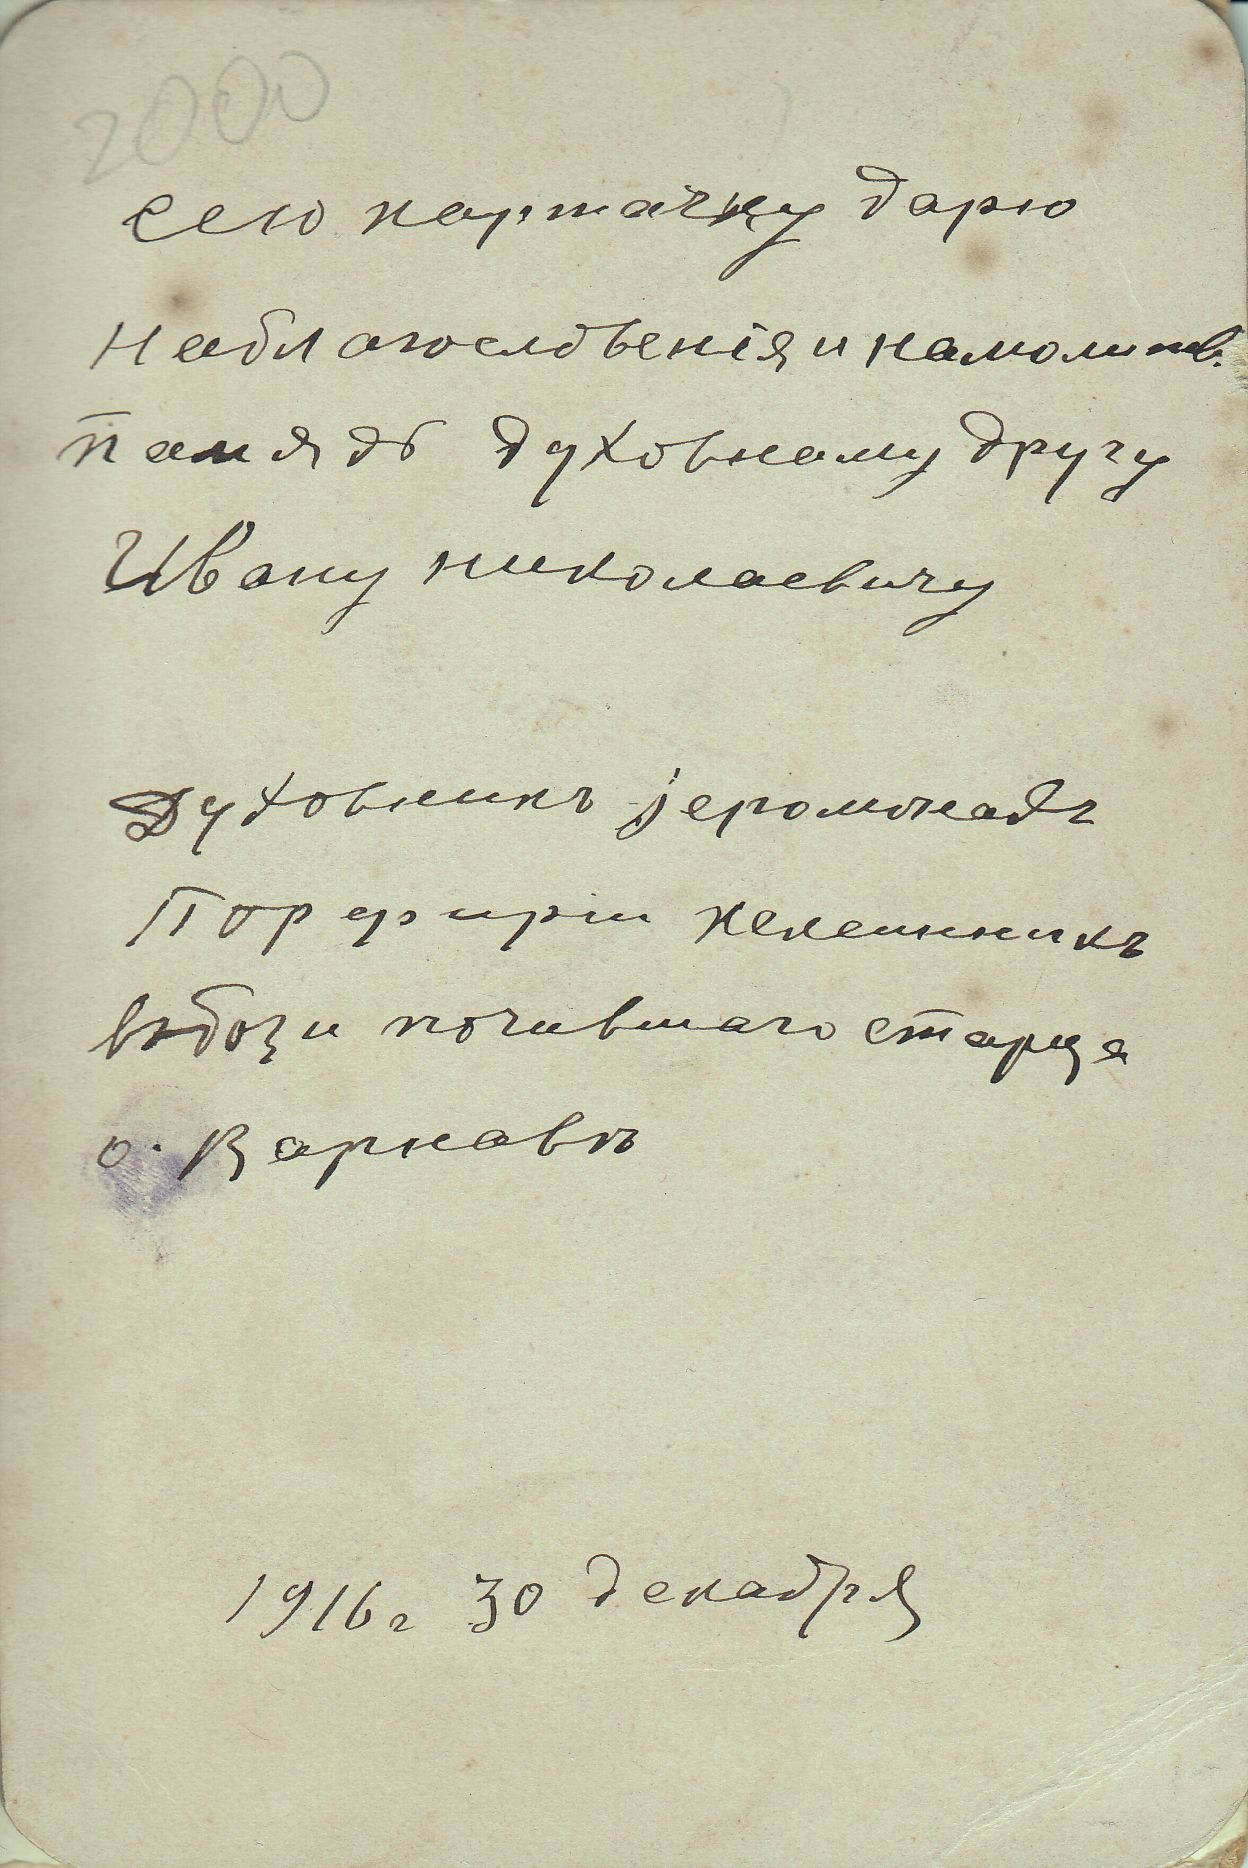 2000
Сею картачку дарю
на благословенія и на молитв.
памядь духовному другу
Ивану николаевичу
Духовникъ јеромонахъ
Порфирiи келеиникъ
въбози почившаго старца
о. Варнавъ
1916 г 30 декабря